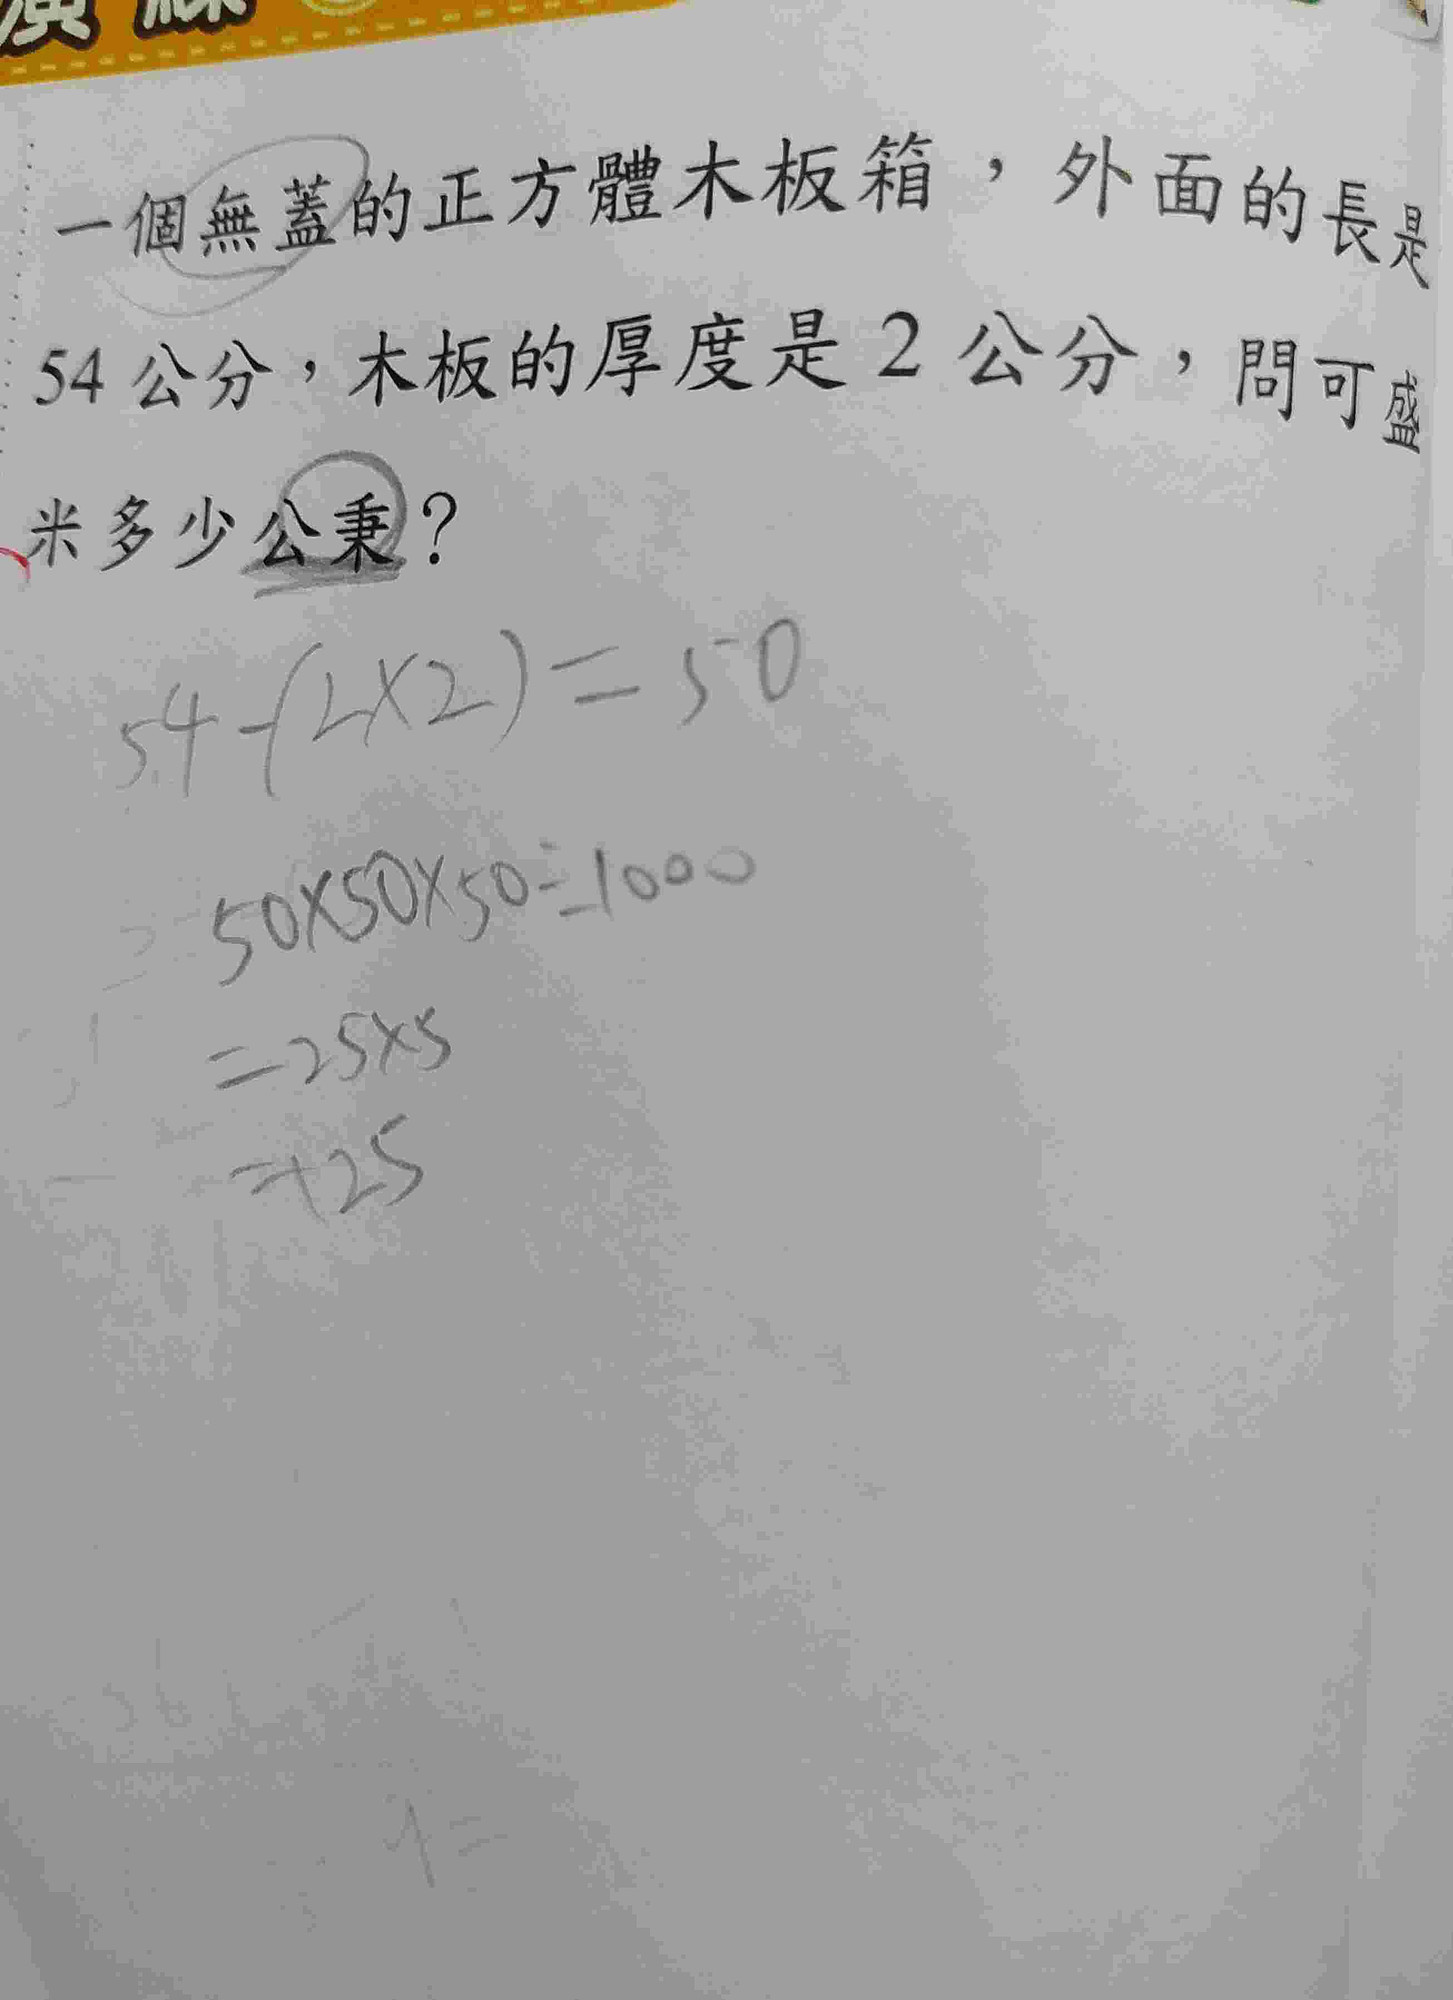 演練
一個無蓋的正方體木板箱，外面的長是
54公分，木板的厚度是2公分，問可盛
米多少公秉？
54-(2×2)=50
50×50×50÷1000
=25×5
=125